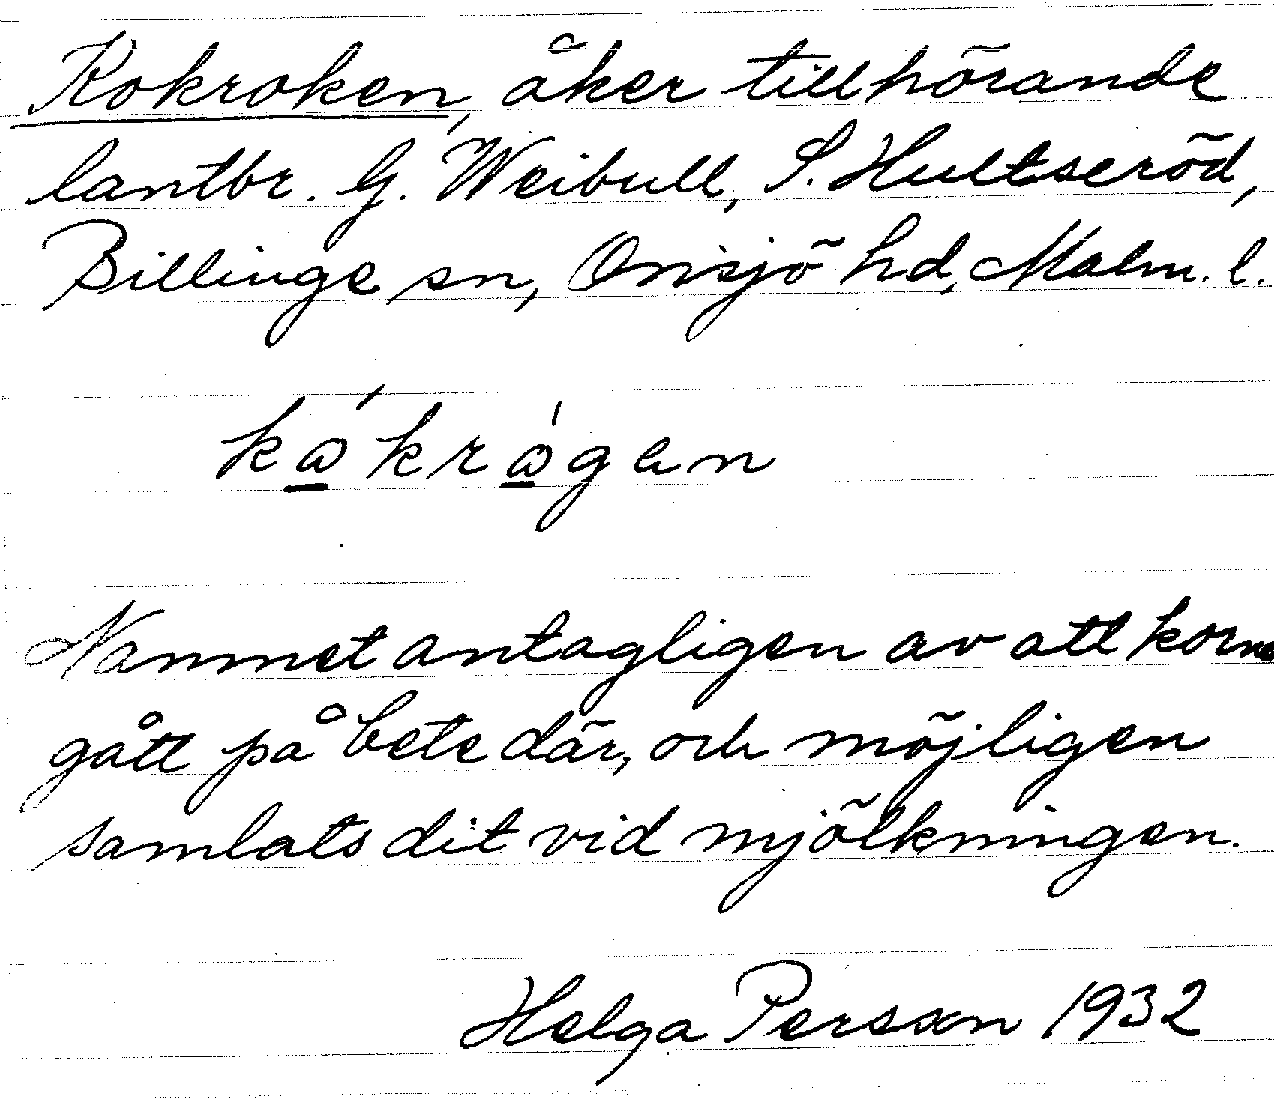 Kokroken, åker tillhörande
lantbr. G. Weibull, S. Hultseröd,
Billinge sn, Onsjö hd, Malm. l.
kώkrὼgen
Namnet antagligen av att korna
gått på bete där, och möjligen
samlats dit vid mjölkningen.
Helga Persson 1932